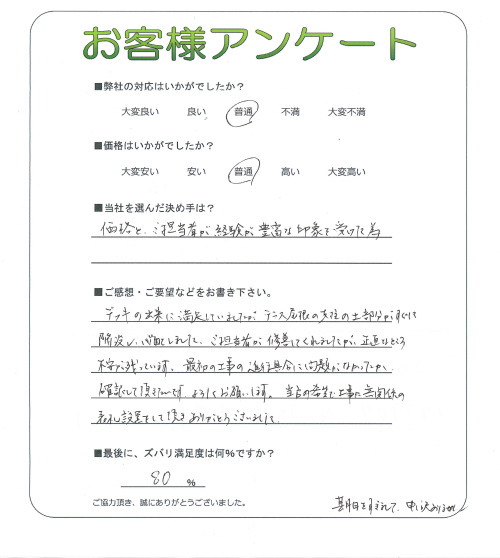 お客様アンケート
■弊社の対応はいかがでしたか？
大変良い 良い 普通 不満 大変不満
■価格はいかがでしたか？
大変安い 安い 普通 高い 大変高い
■当社を選んだ決め手は？
価格と、ご担当者が経験が豊富な印象を受けた為
■ご感想・ご要望などをお書き下さい。
デッキの出来に満足していましたが テラス屋根の支柱の土部分がすぐに
陥没し 心配しました、ご担当者が修善してくれましたが、正直なところ
不安が残っています、最初の工事の進行具合に問題がなかったか
確認して頂きたいです よろしくお願いします。当方の希望で工事に無関係の
表札設置をして頂き ありがとうございました
■最後に、ズバリ満足度は何%ですか？
80 %
ご協力頂き、誠にありがとうございました。